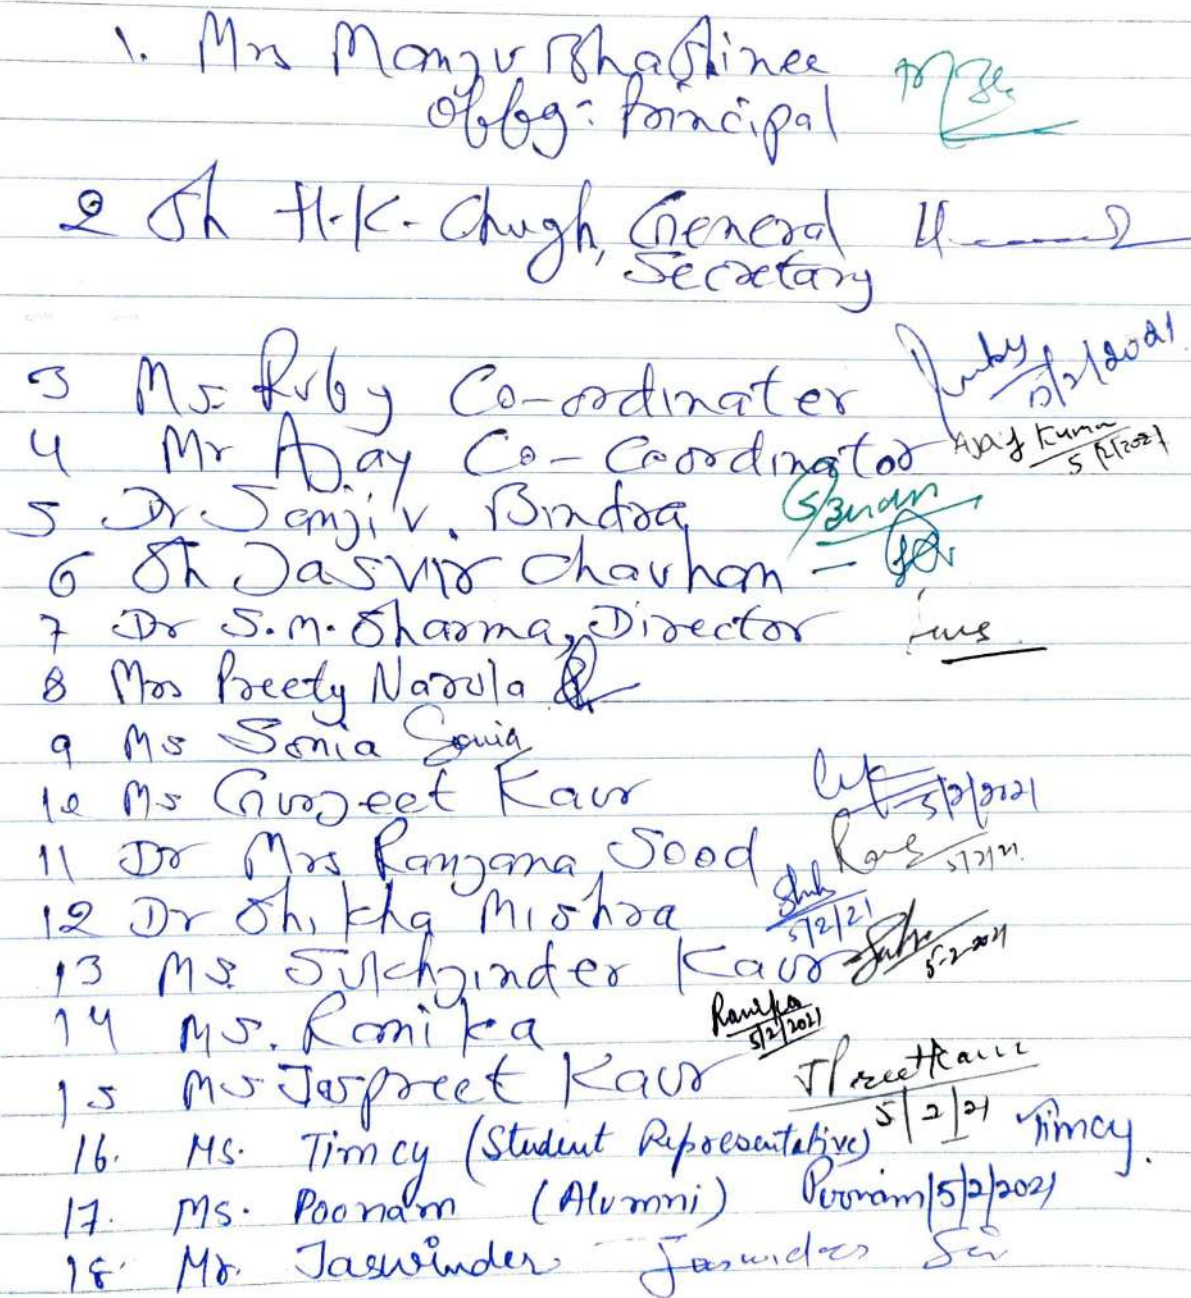 1. Mrs Manju Bhashinee
Offg: Principal
2 Sh H.K. Chugh, General
Secretary
3 Ms Ruby Co-ordinater Ruby 5/2/2021
4 Mr Ajay Co-Coordinator Ajay Kumar 5/2/2021
5 Dr Sanjiv. Bindra
6 Sh Jasvir Chauhan -
7 Dr S.M. Sharma, Director
8 Mrs Preety Narula
9 Ms Sonia Sonia
10 Ms Gurjeet Kaur 5/2/2021
11 Dr Mrs Ranjana Sood 5/2/21
12 Dr Shikha Mishra 5/2/21
13 Ms. Sukhjinder Kaur 5-2-2021
14 Ms. Ramika Ramika 5/2/2021
15 Ms Jaspreet Kaur JPreetKaur 5/2/21
16. Ms. Timcy (Student Representative) Timcy.
17. Ms. Poonam (Alumni) Poonam/5/2/2021
18. Mr. Jaswinder